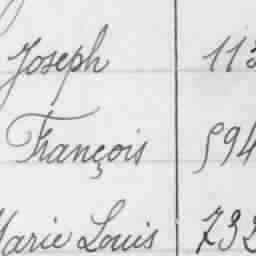 Joseph 113
François 594
Marie Louis 732